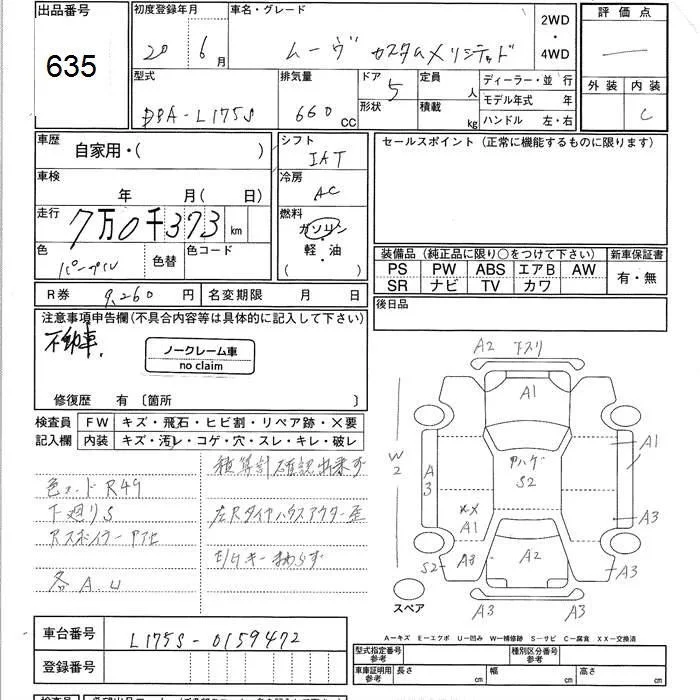 出品番号
635
初度登録年月
20年 6月
車名・グレード
ムーヴ カスタムメリミテッド
2WD
・
4WD
評価点
外装 内装
C
型式
DBA-L175S
排気量
660 CC
ドア 5
形状
定員 人
積載 kg
ディーラー・並行
モデル年式 年
ハンドル 左・右
車歴
自家用・( )
シフト
IAT
セールスポイント (正常に機能するものに限ります)
車検
年 月( 日)
冷房
AC
走行
7万0千373 km
燃料
ガソリン
・
軽・油
( )
色
パープル
色替
色コード
装備品 (純正品に限り○をつけて下さい)
新車保証書
PS PW ABS エアB AW
SR ナビ TV カワ
有・無
R券 9,260円
名変期限 月 日
後日品
注意事項申告欄(不具合内容等は具体的に記入して下さい)
不動車.
ノークレーム車
no claim
修復歴 有〔箇所 〕
検査員
記入欄
FW キズ・飛石・ヒビ割・リペア跡・×要
内装 キズ・汚レ・コゲ・穴・スレ・キレ・破レ
積算計確認出来ず
色コードR49
下廻りS
左Rタイヤハウスアウター歪
Rスポイラー
キーまわらず
各A.U
A2 下スリ
A1
W2
A3
ヤハゲ
S2
A1
XX
A1
A3
S2
A3
A2
A3
A3
A3
スペア
A-キズ E-エクボ U-凹み W-補修跡 S-サビ C-腐食 XX-交換済
車台番号
L175S-0159472
登録番号
型式指定番号
参考
種別区分番号
参考
車庫証明用
参考
長さ cm
幅 cm
高さ cm